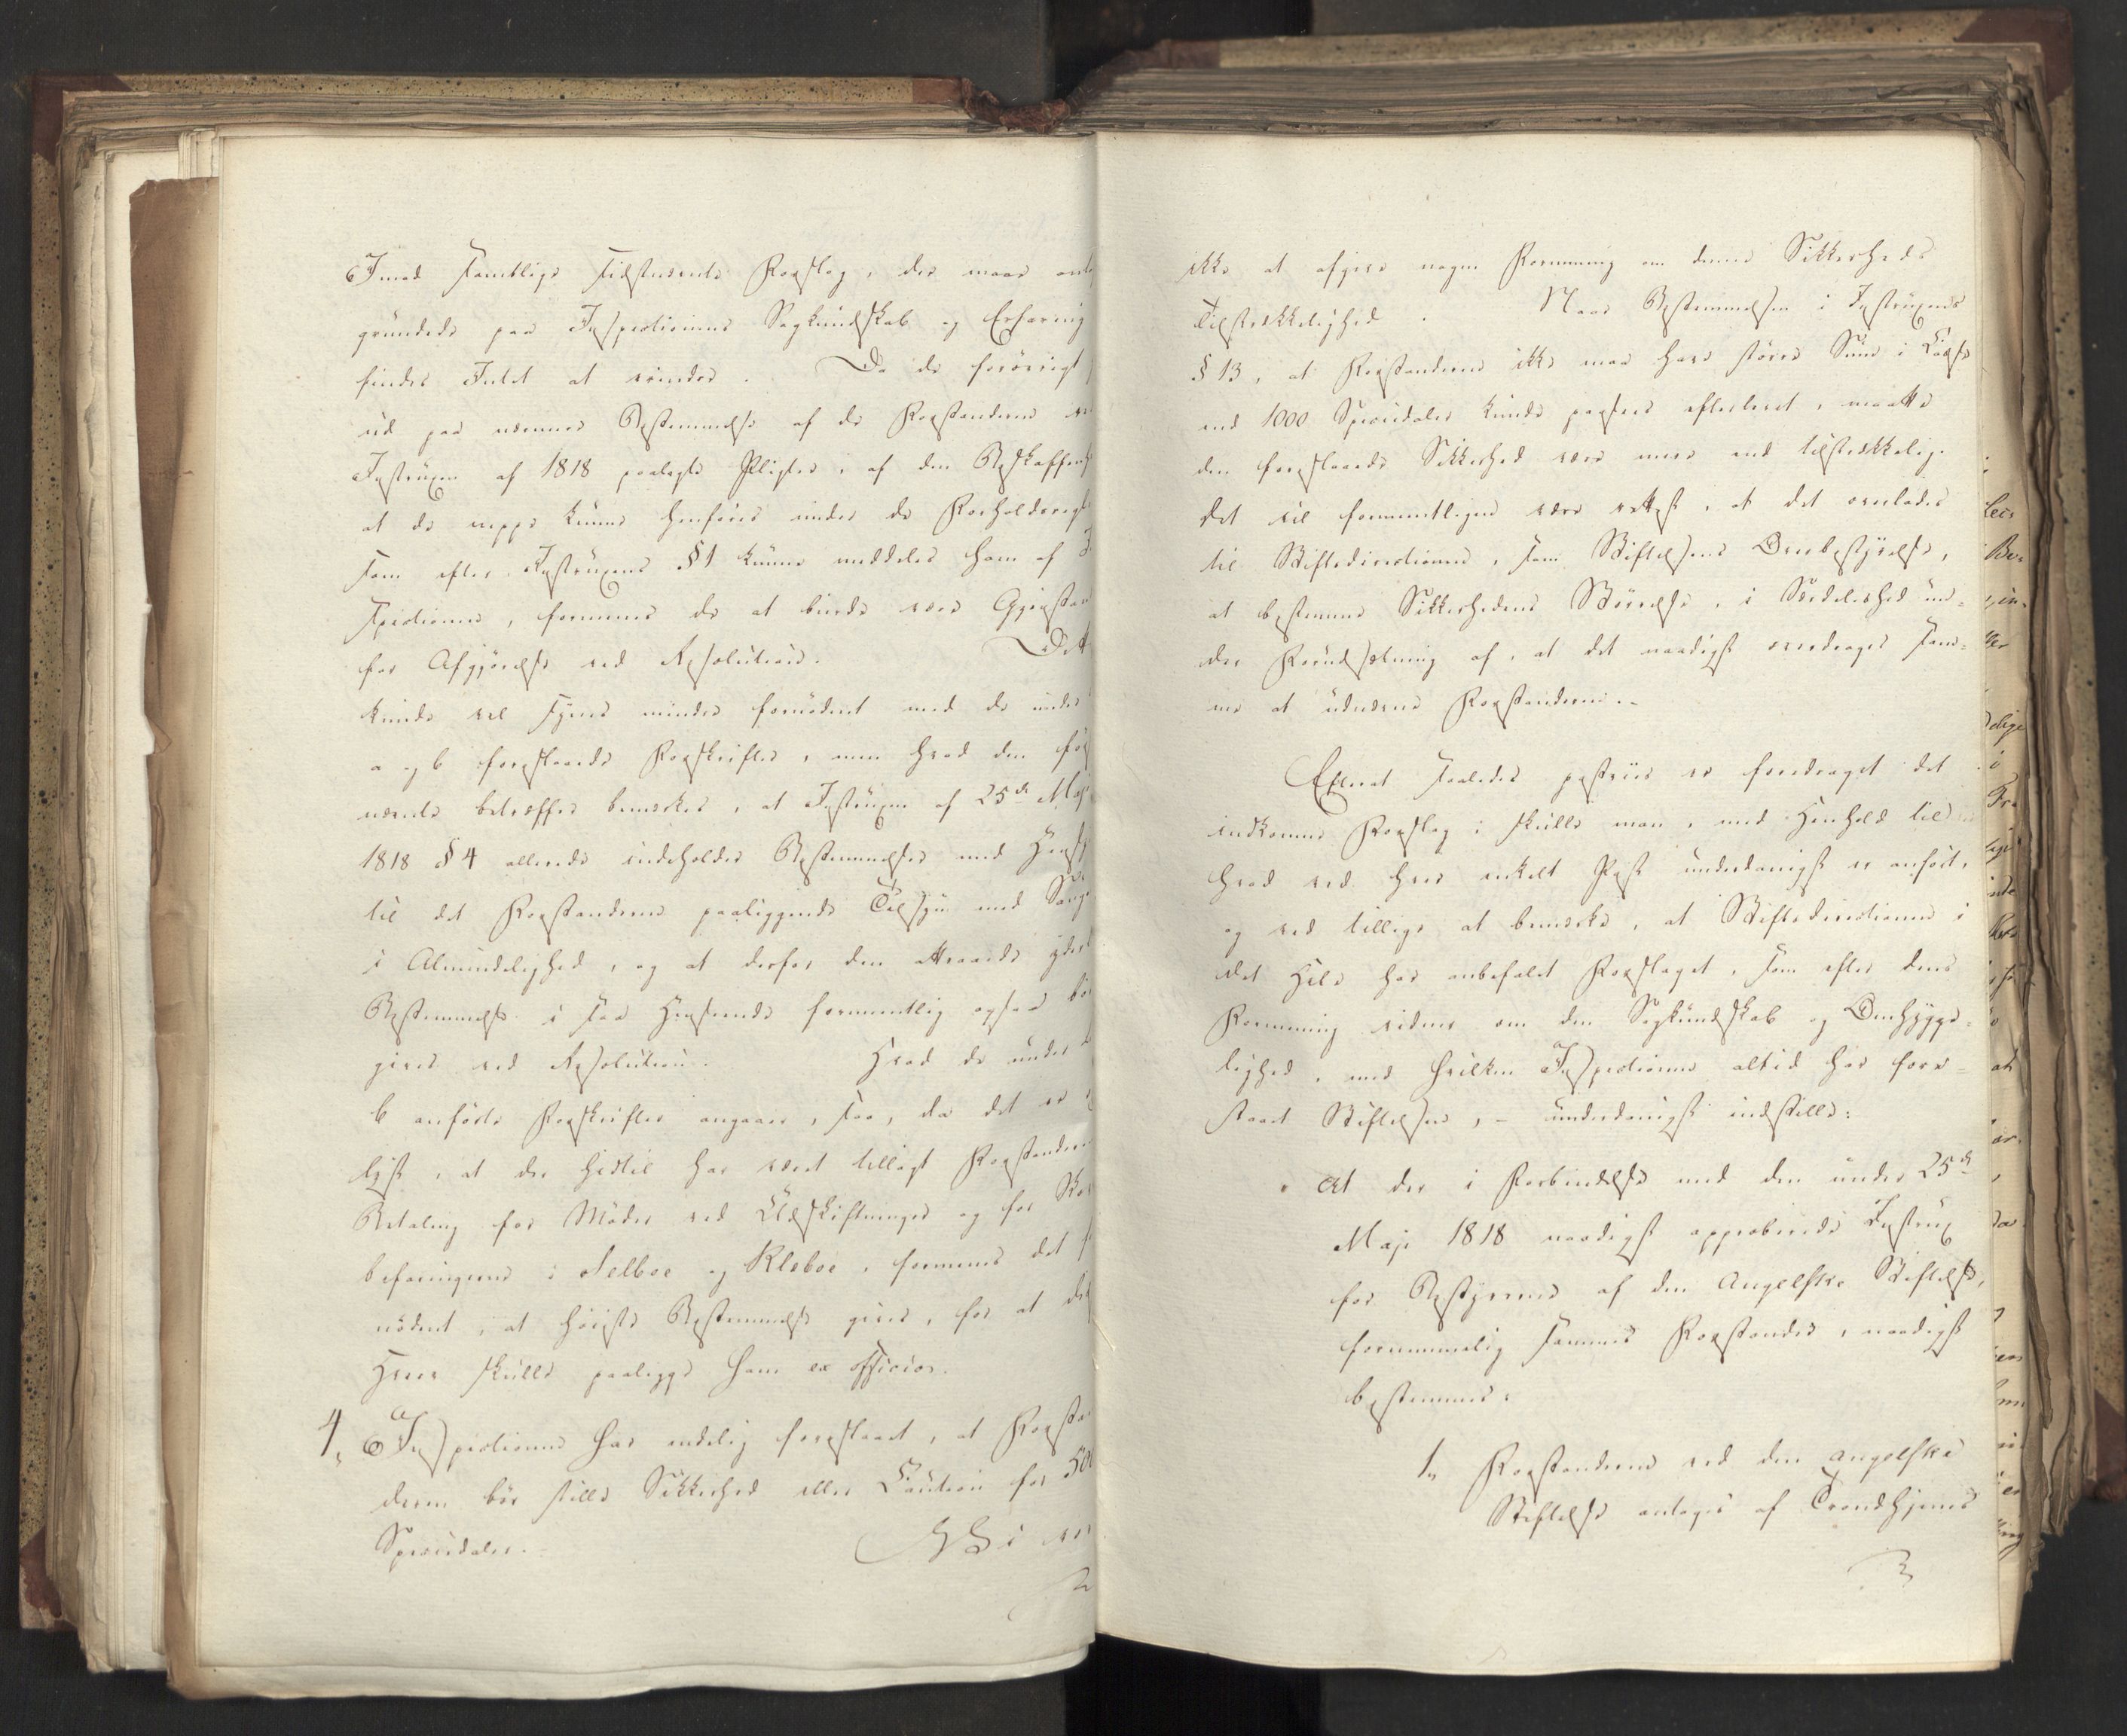 Imod samtlige sidstnævnte Forslag, der maae an
grundede paa Inspectionens Sagkundskab og Erfaring
findes Intet at erindre. Da de forövrigt
ud paa nærmere Bestemmelse af de Forstanderen ved
Instruxen af 1818 paalagte Pligter, af den Beskaffenh
at de neppe kunne henföres under de Forholdsregl
som efter Instruxens § 1 kunne meddeles ham af In
spectionen, formenes de at burde være Gjenstan
for Afgjörelse ved Resolution. Dett
kunde vel synes mindre fornödent med de under
a og b foreslaaede Forskrifter, men hvad den för
nævnte betræffer bemærkes, at Instruxen af 25de Maji
1818 § 4 allerede indeholder Bestemmelser med Hensy
til det Forstanderen paaliggende Tilsyn med
i Almindelighed, og at derfor den attraaede yder
Bestemmelse i saa Henseende formentlig ogsaa bör
gives ved Resolution. Hvad de under
b anförte Forskrifter angaaer, saa, da det er
lyst, at der hidtil har været tillagt Forstanderen
Betaling for Möder ved Udskiftninger og for Skov
befaringerne i Selboe og Klæboe, formenes det
nödent, at höieste Bestemmelse gives, for at det
Hverv skulle paaligge ham ex officio.
4, Inspectionen har endelig foreslaaet, at Forstan
deren bör stille Sikkerhed eller Caution for 500
Speciedaler. Vi ver
ikke at afgive nogen Formening om denne Sikkerheds
Tilstrækkelighed. Naar Bestemmelsen i Instruxens
§ 13, at Forstanderen ikke maa have större Sum i Casse
end 1000 Speciedaler kunde passes efterlevet, maatte
den foreslaaede Sikkerhed være mere end tilstrækkelig.
Det vil formentligen være rettest, at det overlades
til Stiftsdirectionen, som Stiftelsens Overbestyrelse,
at bestemme Sikkerhedens Störrelse, i Særdeleshed un-
der Forudsætning af, at det naadigst overdrages sam-
me at udnævne Forstanderen.-
Efterat saaledes passiis er foredraget det
indkomne Forslag, skulle man, med Henhold til
hvad ved hver enkelt Post underdanigst er anfört,
og ved tillige at bemærke, at Stiftsdirectionen i
det Hele har anbefalet Forslaget, som efter dens
Formening vidner om den Sagkundskab og Omhygge-
lighed, med hvilken Inspectionen altid har fore-
staaet Stiftelsen, - underdanigst indstille:
At der i Forbindelse med den under 25de
Maji 1818 naadigst approberede Instrux
for Bestyrerne af den Angelske Stiftelse,
fornemmelig sammes Forstander, naadigst
bestemmes:
1, Forstanderen ved den angelske
Stiftelse antages af Trondhjems